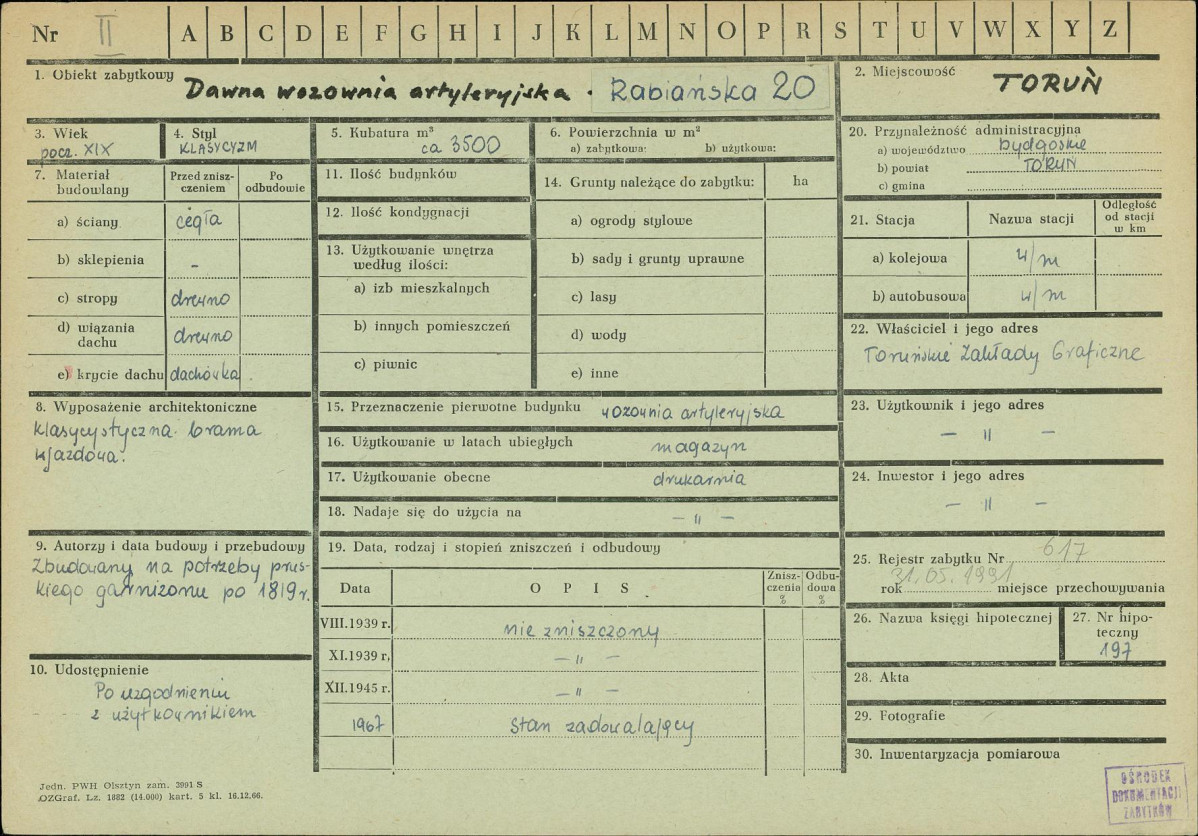 Nr II A B C D E F G H I J K L M N O P R S T U V W X Y Z
1. Obiekt zabytkowy
Dawna wozownia artyleryjska . Rabiańska 20
2. Miejscowość
TORUŃ
3. Wiek
pocz. XIX
4. Styl
KLASYCYZM
5. Kubatura m³
ca 3500
6. Powierzchnia w m²
a) zabytkowa: b) użytkowa:
7. Materiał budowlany
Przed znisz-
czeniem
Po
odbudowie
a) ściany cegła
b) sklepienia -
c) stropy drewno
d) wiązania
dachu drewno
e) krycie dachu dachówka
8. Wyposażenie architektoniczne
klasycystyczna brama
wjazdowa.
9. Autorzy i data budowy i przebudowy
Zbudowany na potrzeby prus-
kiego garnizonu po 1819 r.
10. Udostępnienie
Po uzgodnieniu
z użytkownikiem
11. Ilość budynków
12. Ilość kondygnacji
13. Użytkowanie wnętrza
według ilości:
a) izb mieszkalnych
b) innych pomieszczeń
c) piwnic
14. Grunty należące do zabytku: ha
a) ogrody stylowe
b) sady i grunty uprawne
c) lasy
d) wody
e) inne
15. Przeznaczenie pierwotne budynku wozownia artyleryjska
16. Użytkowanie w latach ubiegłych magazyn
17. Użytkowanie obecne drukarnia
18. Nadaje się do użycia na - " -
19. Data, rodzaj i stopień zniszczeń i odbudowy
Data OPIS Znisz-
czenia
% Odbu-
dowa
%
VIII.1939 r. nie zniszczony
XI.1939 r. - " -
XII.1945 r. - " -
1967 stan zadowalający
20. Przynależność administracyjna
a) województwo bydgoskie
b) powiat TORUŃ
c) gmina
21. Stacja Nazwa stacji Odległość
od stacji
w km
a) kolejowa w/m
b) autobusowa w/m
22. Właściciel i jego adres
Toruńskie Zakłady Graficzne
23. Użytkownik i jego adres
- " -
24. Inwestor i jego adres
- " -
25. Rejestr zabytku Nr 617
31.05.1991
rok miejsce przechowywania
26. Nazwa księgi hipotecznej
27. Nr hipo-
teczny
197
28. Akta
29. Fotografie
30. Inwentaryzacja pomiarowa
Jedn. PWH Olsztyn zam. 3991 S
OZGraf. Lz. 1882 (14.000) kart. 5 kl. 16.12.66.
OŚRODEK
DOKUMENTACJI
ZABYTKÓW